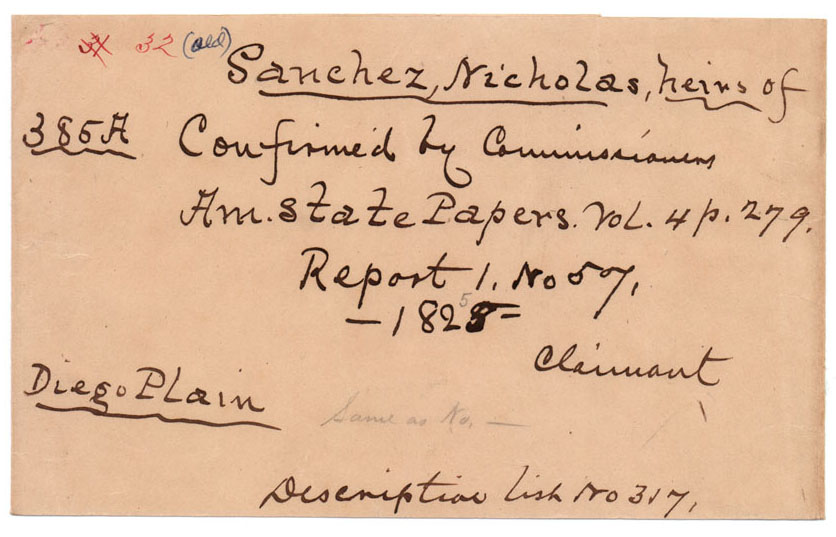 32 (old)
Sanchez, Nicholas, heirs of
385A Confirmed by Commissioners
Am. State Papers. Vol. 4 p. 279.
Report 1. No 57.
— 1825 —
Claimant
Diego Plain
Same as No. —
Descriptive list No 317.